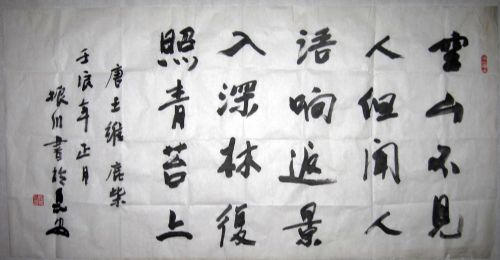 空山不見
人但聞人
語响返景
入深林復
照青苔上
唐王維鹿柴
壬辰年正月
書於